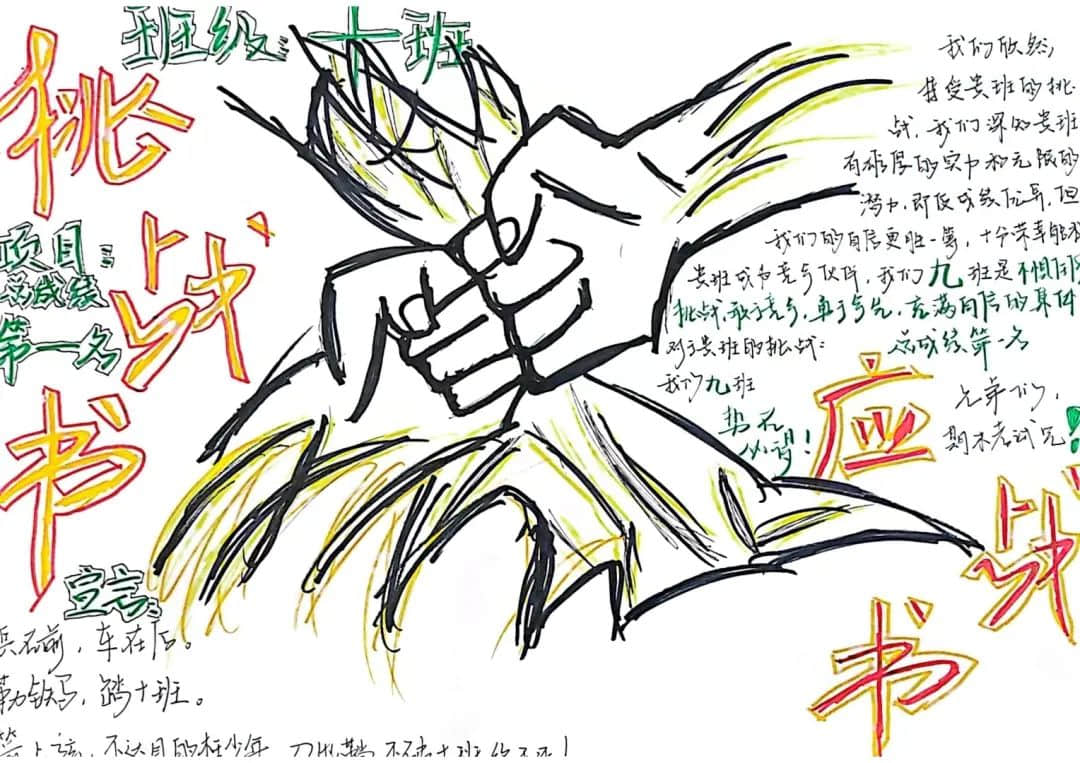 班级:十班
挑战书
项目:
总成绩
第一名
宣言:
兵在前,车在后。
勒铁马,踏十班。
不达目的枉少年
我们欣然
接受贵班的挑
战,我们深知贵班
有雄厚的实力和无限的
潜力,即便成绩优异,但
我们的自信更胜一筹,十分荣幸能和
贵班成为竞争伙伴,我们九班是不惧
挑战,敢于竞争,勇于争先,充满自信的集体
对于贵班的挑战:
总成绩第一名
我们九班
势在
必得!
兄弟们,
期末考试见!
应战书